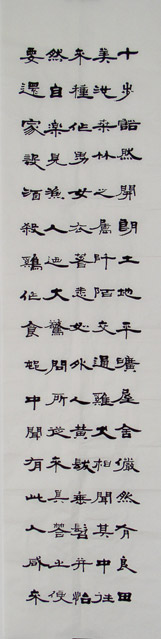 十步豁然開朗土地平曠屋舍儼然有良田
美池桑竹之屬阡陌交通雞犬相聞其中往
來種作男女衣著悉如外人黃髮垂髫并怡
然自樂見漁人迺大驚問所從來具答之便
要還家設酒殺鷄作食邨中聞有此人咸來